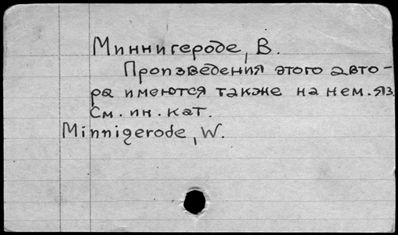 Миннигероде, В.
Произведения этого авто-
ра имеются также на нем. яз.
См. ин. кат.
Minnigerode, W.